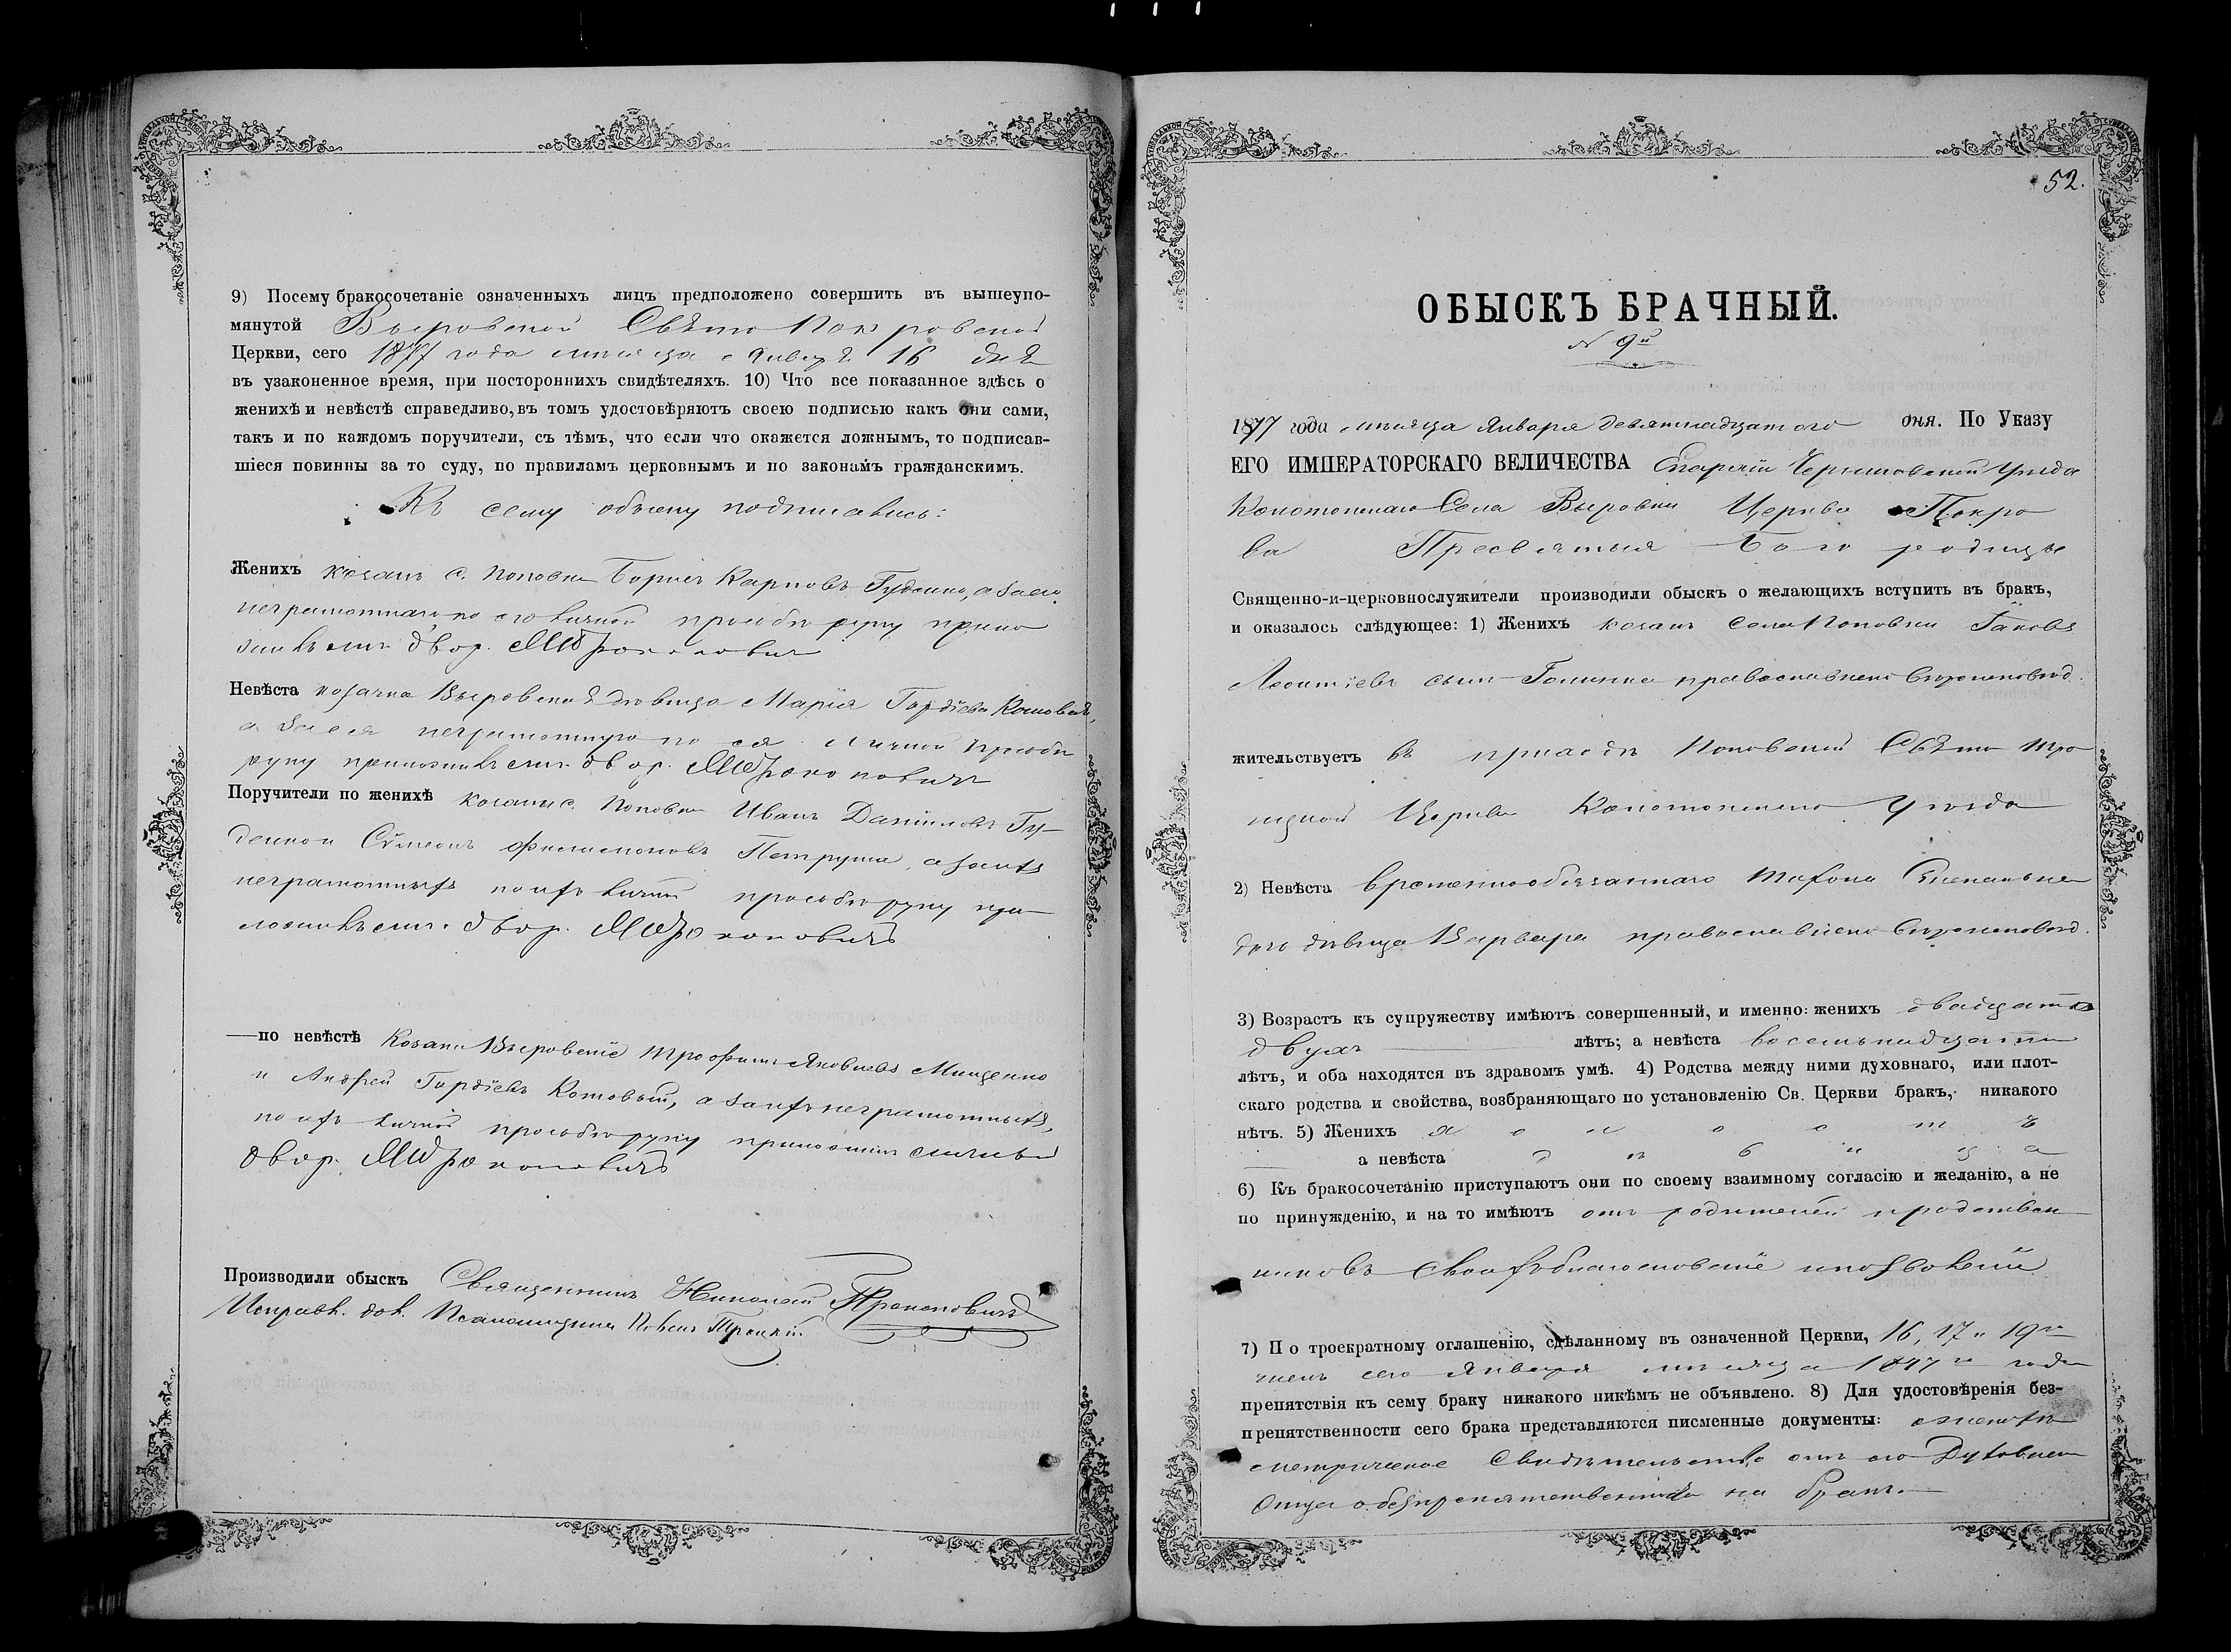 9) Посему бракосочетаніе означенныхъ лицъ предположено совершить въ вышеупо-
мянутой Выровской Свѣто Покровской
Церкви, сего 1877 года мѣсяца Января 16 дня
въ узаконенное время, при постороннихъ свидѣтеляхъ. 10) Что все показанное здѣсь о
женихѣ и невѣстѣ справедливо, въ томъ удостовѣряютъ своею подписью какъ они сами,
такъ и по каждомъ поручители, съ тѣмъ, что если что окажется ложнымъ, то подписав-
шіеся повинны за то суду, по правиламъ церковнымъ и по законамъ гражданскимъ.
Къ сему обыску подписались:
Женихъ козакъ с. Поповки Борисъ Карповъ Гуденко, а за его
неграмотнаго по его личной просьбѣ руку прило
жилъ двор. Прокоповичъ
Невѣста козачка Выровская дѣвица Марія Гордіева Котовая,
а за нея неграмотную по ея личной просьбѣ
руку приложилъ двор. Прокоповичъ
Поручители по женихѣ козаки с. Поповки Иванъ Даніиловъ Гу-
денко и Сѵмеонъ Филимоновъ Петруша, а за ихъ
неграмотныхъ по ихъ личной просьбѣ руку при-
ложилъ двор. Прокоповичъ
—по невѣстѣ Козаки Выровскіе Трофимъ Яковлевъ Мищенко
и Андрей Гордіевъ Котовый, а за ихъ неграмотныхъ,
по ихъ личной просьбѣ руку приложилъ
двор. Прокоповичъ
Производили обыскъ Священникъ Николай Прокоповичъ
Исправл. дол. Псаломщика Павелъ Троцкій
52.
ОБЫСКЪ БРАЧНЫЙ.
N 9й
1877 года мѣсяца Января девятнадцатаго дня. По Указу
ЕГО ИМПЕРАТОРСКАГО ВЕЛИЧЕСТВА Епархіи Черниговской Уѣзда
Конотопскаго Села Выровки Церкви Покро
ва Пресвятыя Бого родицы
Священно-и-церковнослужители производили обыскъ о желающихъ вступить въ бракъ,
и оказалось слѣдующее: 1) Женихъ козакъ села Поповки Іаковъ
Леонтіевъ сынъ Галинка православнаго вѣроисповѣд.
жительствуетъ въ приходѣ Поповской Свѣто Тро
ицкой Церкви Конотопскаго Уѣзда
2) Невѣста временнообязаннаго Степаньна
дочь дѣвица Варвара православнаго вѣроисповѣд.
3) Возрастъ къ супружеству имѣютъ совершенный, и именно: женихъ двадцати
двухъ лѣтъ; а невѣста восемнадцати
лѣтъ, и оба находятся въ здравомъ умѣ. 4) Родства между ними духовнаго, или плот-
скаго родства и свойства, возбраняющаго по установленію Св. Церкви бракъ, никакого
нѣтъ. 5) Женихъ х о л о с т ъ
а невѣста д ѣ в и ц а
6) Къ бракосочетанію приступаютъ они по своему взаимному согласію и желанію, а не
по принужденію, и на то имѣютъ отъ родителей и родствен
никовъ своихъ благословеніе и позволеніе
7) По троекратному оглашенію, сдѣланному въ означенной Церкви, 16, 17 и 19го
числъ сего Января мѣсяца 1877го года
препятствія къ сему браку никакого никѣмъ не объявлено. 8) Для удостовѣренія без-
препятственности сего брака представляются писменные документы: о женихѣ
метрическое свидѣтельство отъ его Духовнаго
Отца о безпрепятственности на бракъ.